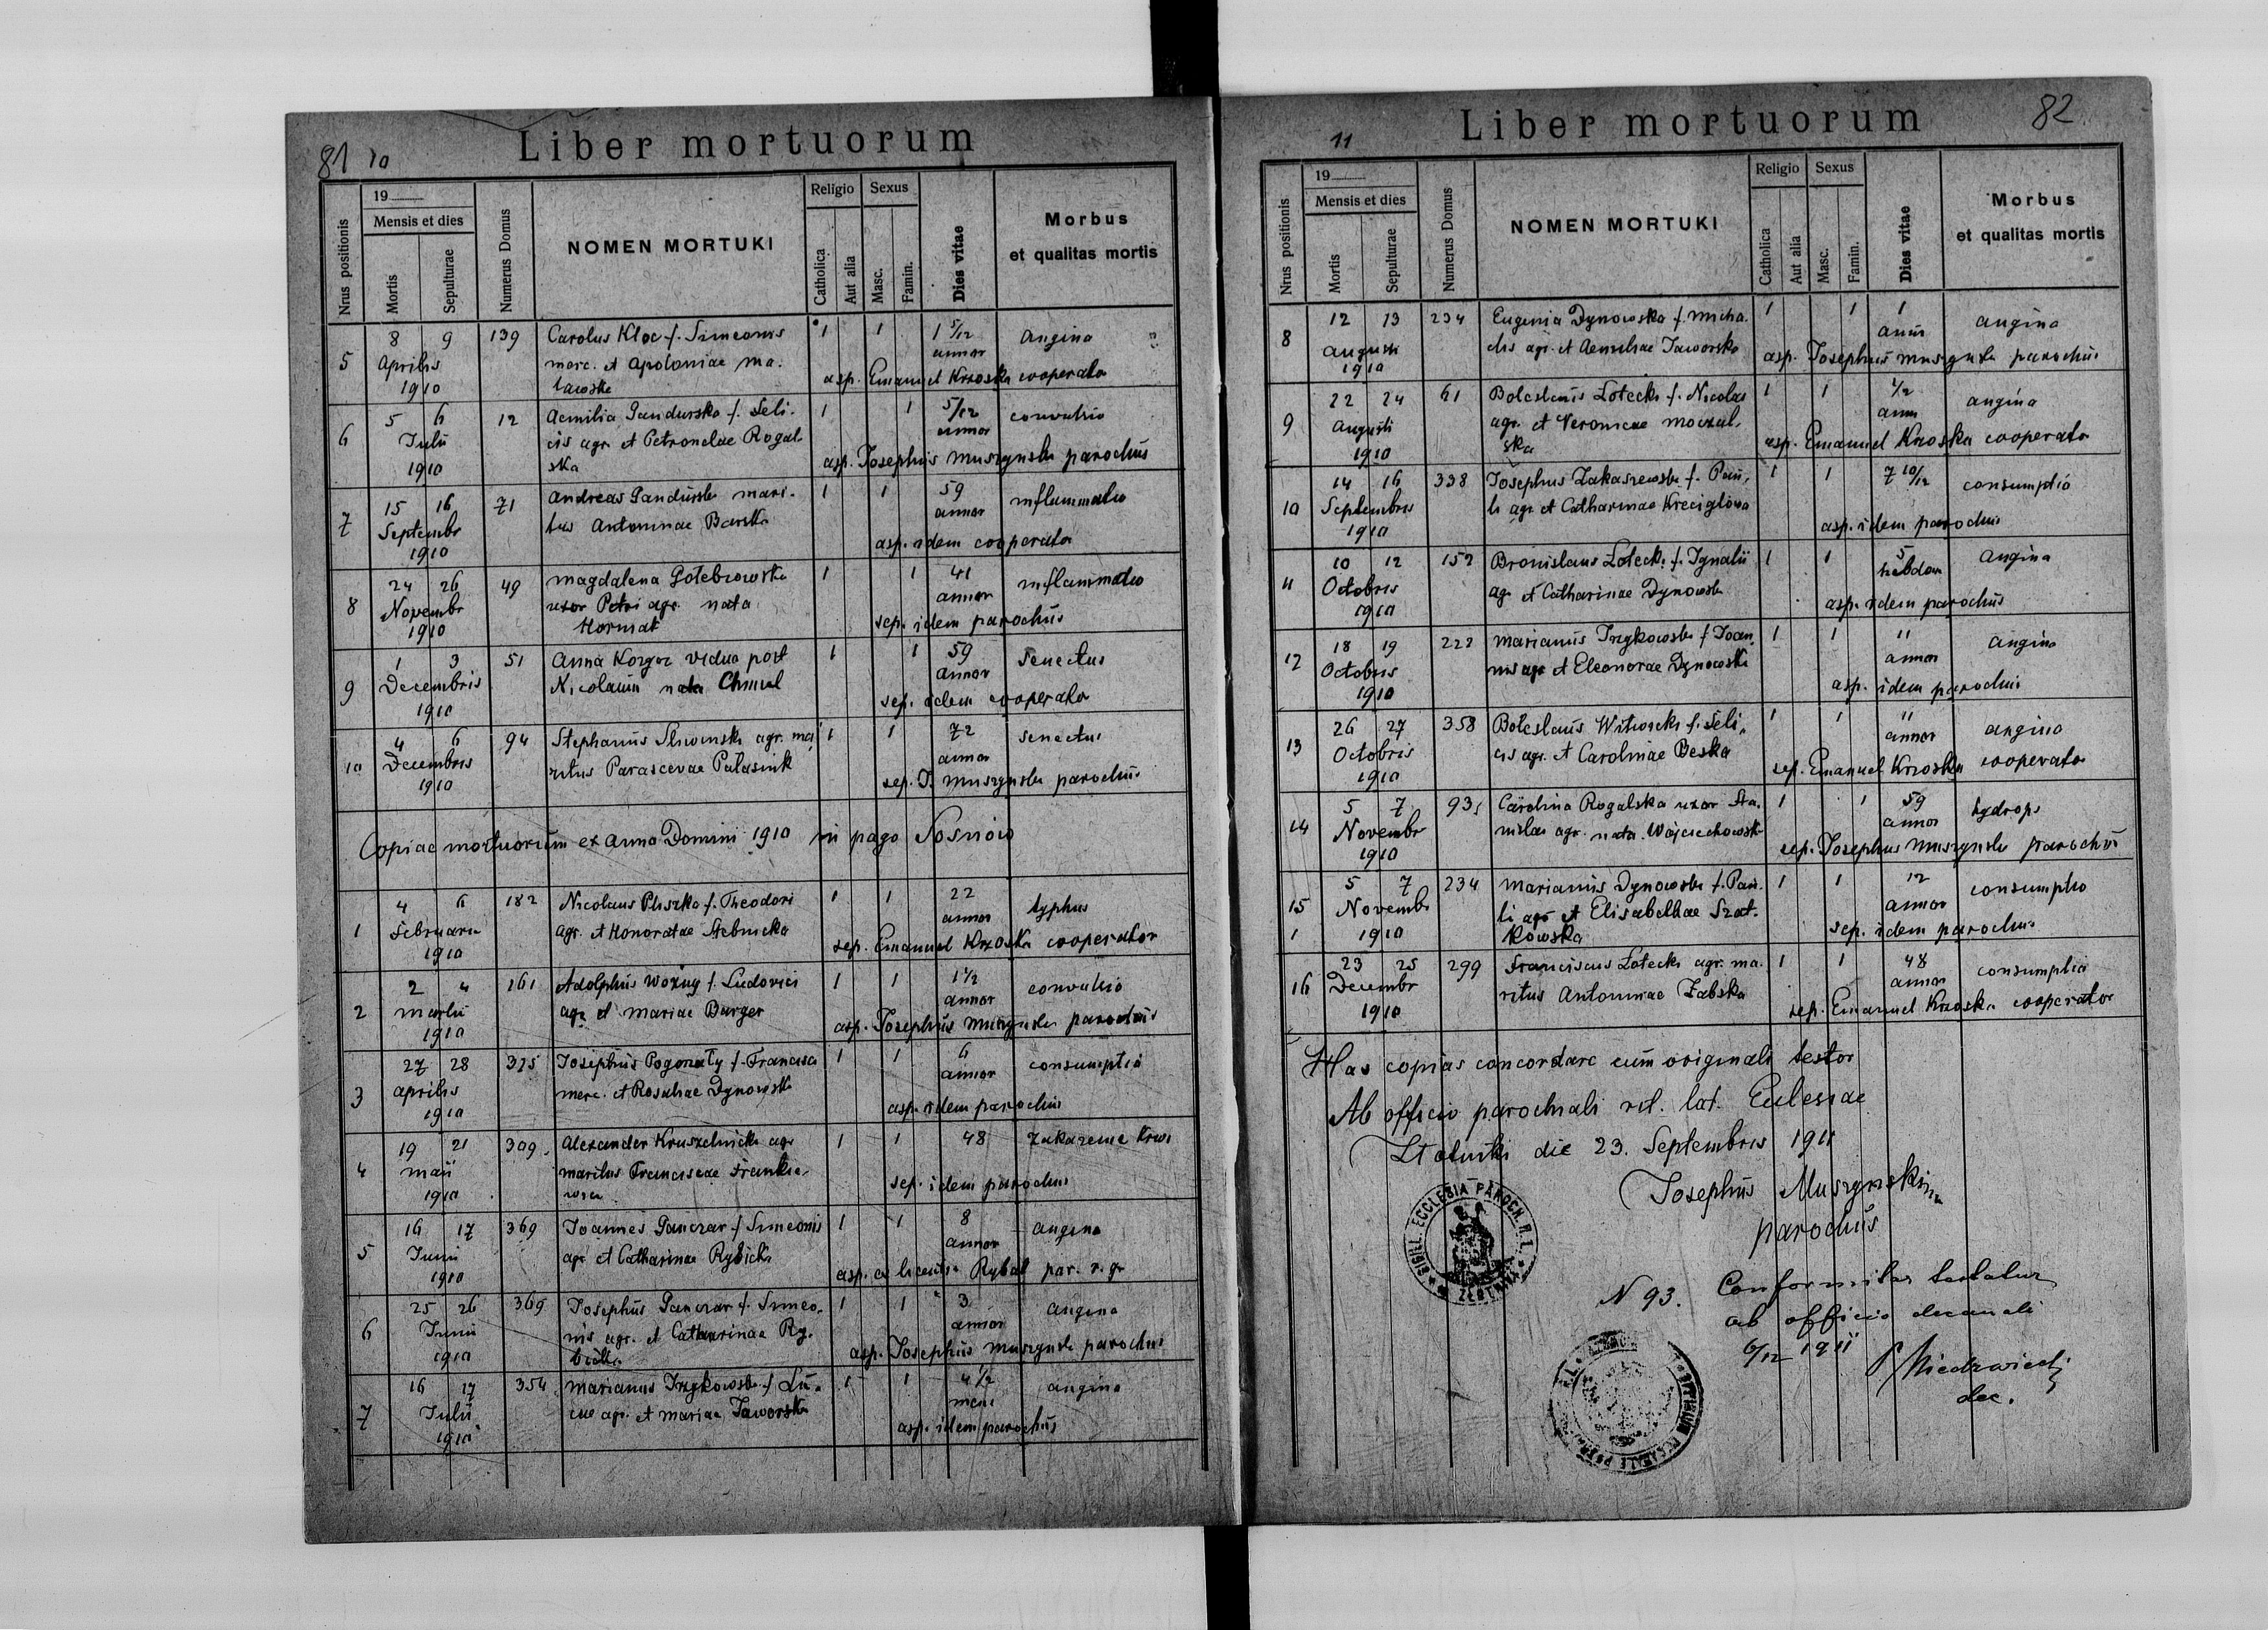 81 10
Liber mortuorum
Nrus positionis
19
Mensis et dies
Mortis
Sepulturae
Numerus Domus
NOMEN MORTUKI
Religio
Catholica
Aut alia
Sexus
Masc.
Famin.
Dies vitae
Morbus
et qualitas mortis
5
8 9 139 Carolus Kloc f. Simeonis 1 1 1 5/12 angina
Aprilis merc. et Apoloniae Ma- annor
1910 asp. Emanuel Krzoska cooperator
5 6 12 Aemilia Pandurska f. Feli- 1 1 5/12 convulsio
6 Julii cis agr. et Petronelae Rogal- annor
1910 ska asp. Josephus Muszynski parochus
15 16 71 Andreas Pandurski mari- 1 1 59 inflammatio
7 Septembr tus Antoninae Barska annor
1910 asp. idem cooperator
24 26 49 Magdalena Golebiowska 1 1 41 inflammatio
8 Novembr uxor Petri agr. nata annor
1910 Hormat sep. idem parochus
1 3 51 Anna Korgor vidua post 1 1 59 senectus
9 Decembris Nicolaum nata Chmiel annor
1910 sep. idem cooperator
4 6 94 Stephanus Sliwinski agr. ma- 1 1 72 senectus
10 Decembris ritus Parascevae Palasiuk annor
1910 sep. J. Muszynski parochus
Copiae mortuorum ex Anno Domini 1910 in pago Sosnów
4 6 182 Nicolaus Pliszka f. Theodori 1 1 22 typhus
1 Februarii agr. et Honoratae Stebnicka annor
1910 sep. Emanuel Krzoska cooperator
2 4 161 Adolphus Woźny f. Ludovici 1 1 1 1/2 convulsio
2 Martii agr. et Mariae Burger annor
1910 asp. Josephus Muszynski parochus
27 28 325 Josephus Pogorzaly f. Francisci 1 1 6 consumptio
3 Aprilis merc. et Rosaliae Dynowska annor
1910 asp. idem parochus
19 21 309 Alexander Kruszelnicki agr. 1 1 48 Zakażenie krwi
4 Maii maritus Franciscae Frankie-
1910 sep. idem parochus
16 17 369 Joannes Panczar f. Simeonis 1 1 8 angina
5 Junii agr. et Catharinae Rybicka annor
1910 asp. ex licentia Rybak par. r. gr.
25 26 369 Josephus Panczar f. Simeo- 1 1 3 angina
6 Junii nis agr. et Catharinae Ry- annor
1910 bicka asp. Josephus Muszynski parochus
16 17 354 Marianus Irzykowski f. Lu- 1 1 4 1/2 angina
7 Julii cae agr. et Mariae Jaworska mens
1910 asp. idem parochus
11
Liber mortuorum
82
Nrus positionis
19
Mensis et dies
Mortis
Sepulturae
Numerus Domus
NOMEN MORTUKI
Religio
Catholica
Aut alia
Sexus
Masc.
Famin.
Dies vitae
Morbus
et qualitas mortis
12 13 234 Eugenia Dynowska f. Micha- 1 1 1 angina
8 Augusti elis agr. et Aemiliae Jaworska anni
1910 asp. Josephus Muszynski parochus
22 24 61 Boleslaus Lotecki f. Nicolai 1 1 1/2 angina
9 Augusti agr. et Veronicae Moczul- anni
1910 ska asp. Emanuel Krzoska cooperator
14 16 338 Josephus Lukaszewski f. Pau- 1 1 7 10/12 consumptio
10 Septembris li agr. et Catharinae Kreciglowa
1910 asp. idem parochus
10 12 152 Bronislaus Lotecki f. Ignatii 1 1 5 angina
11 Octobris agr. et Catharinae Dynowska hebdom
1910 asp. idem parochus
18 19 222 Marianus Irzykowski f. Joan- 1 1 11 angina
12 Octobris nis agr. et Eleonorae Dynowska annor
1910 asp. idem parochus
26 27 358 Boleslaus Witwicki f. Feli- 1 1 11 angina
13 Octobris cis agr. et Carolinae Beska annor
1910 sep. Emanuel Krzoska cooperator
5 7 93 Carolina Rogalska uxor Sta- 1 1 59 hydrops
14 Novembr nislai agr. nata Wojciechowska annor
1910 sep. Josephus Muszynski parochus
5 7 234 Marianus Dynowski f. Pau- 1 1 12 consumptio
15 Novembr li agr. et Elisabethae Szat- annor
1 1910 kowska sep. idem parochus
23 25 299 Franciscus Lotecki agr. ma- 1 1 48 consumptio
16 Decembr ritus Antoninae Zabska annor
1910 sep. Emanuel Krzoska cooperator
Has copias concordare cum originali testor
Ab officio parochiali rit. lat. Ecclesiae
Złotniki die 23. Septembris 1911
Josephus Muszynski
parochus
SIGILL. ECCLESIA PAROCH. R. L.
N 93. Conformitas testatur
ab officio decanali
6/12 1911
P. Niedzwiedzi
dec.